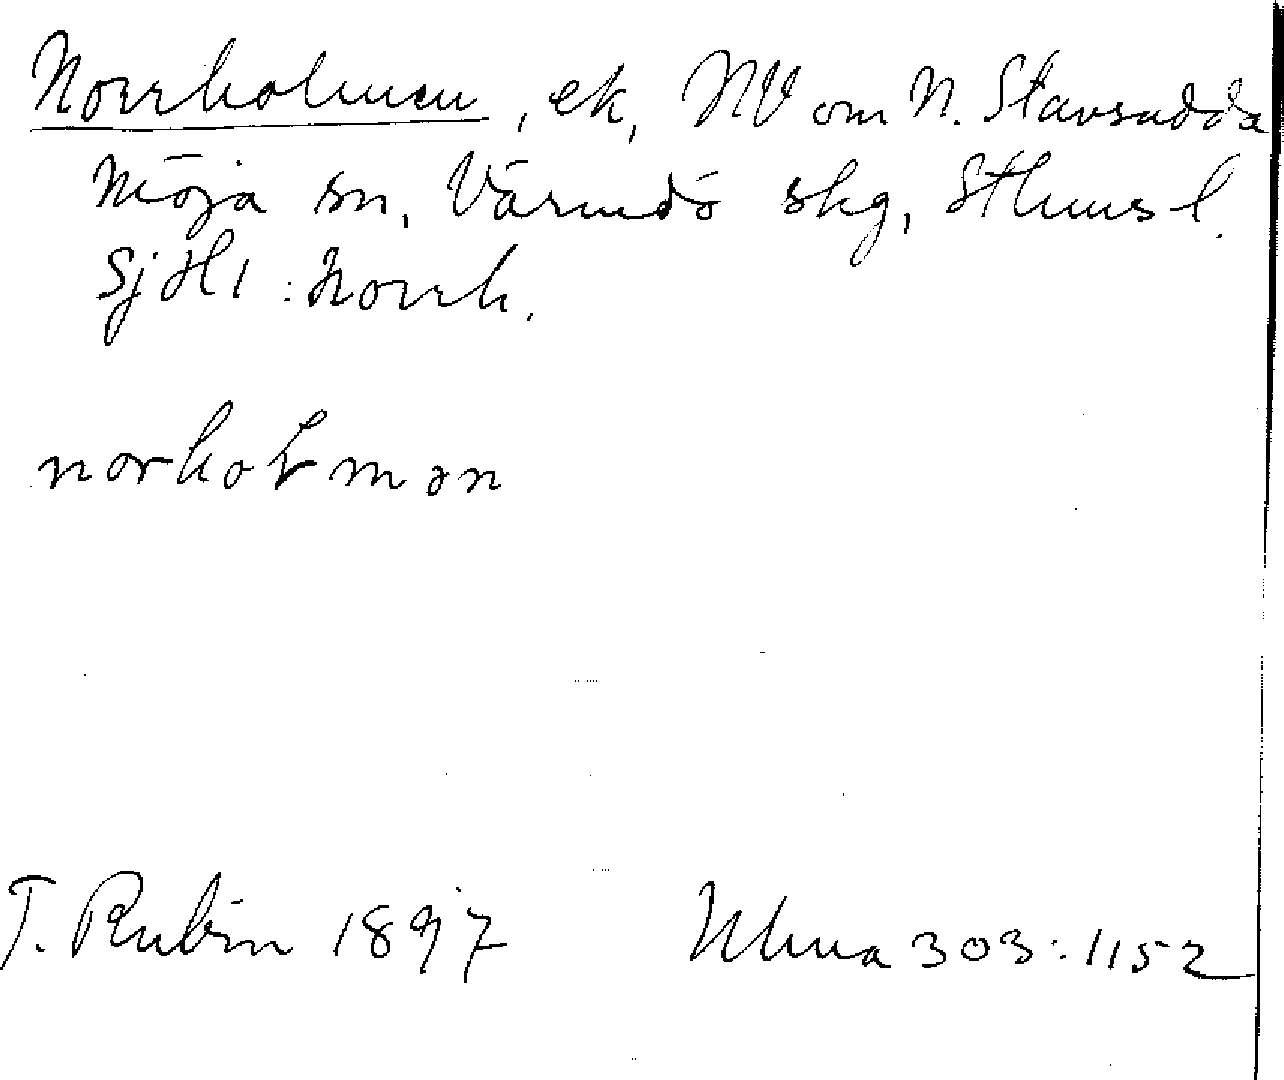 Norrholmen, ek, NV om N. Stavsudda
Möja sn, Värmdö skg, Sthms l.
Sjö H1: Norrh.
norholmən
T. Rubin 1897 Uhua 303:1152